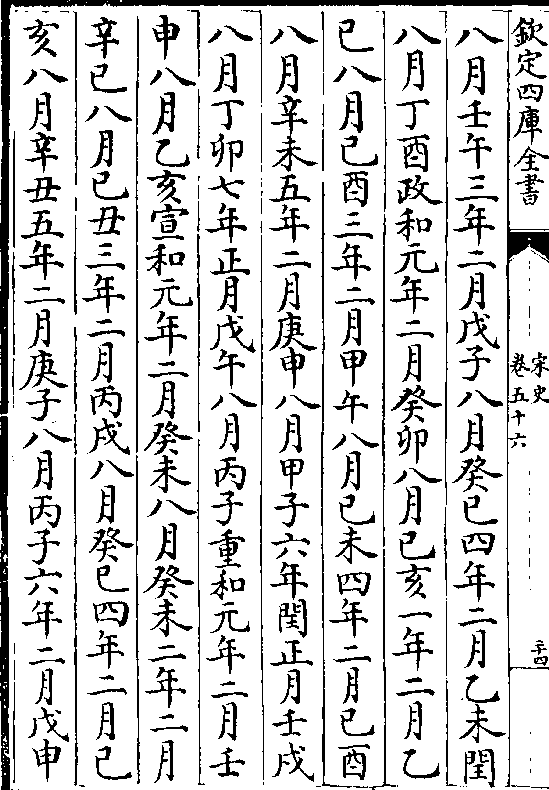 欽定四庫全書
宋史
卷五十六
三十四
八月壬午三年二月戊子八月癸巳四年二月乙未閏
八月丁酉政和元年二月癸卯八月己亥一年二月乙
已八月己酉三年二月甲午八月已未四年二月已酉
八月辛未五年二月庚申八月甲子六年閏正月壬戌
八月丁卯七年正月戊午八月丙子重和元年二月壬
申八月乙亥宣和元年二月癸未八月癸未二年二月
辛已八月已丑三年二月丙戌八月癸巳四年二月已
亥八月辛丑五年二月庚子八月丙子六年二月戊申